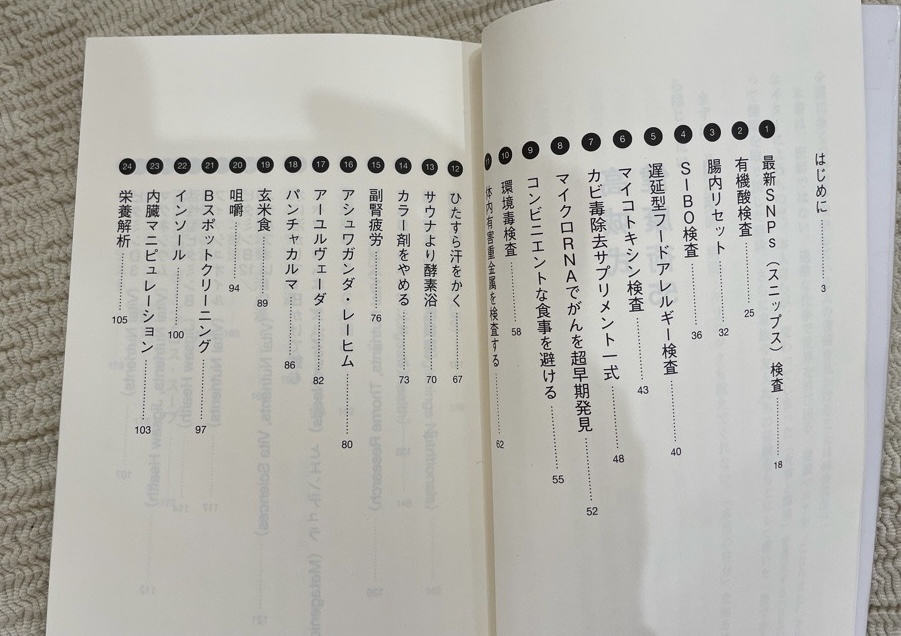 はじめに 3
1 最新SNPs(スニップス)検査 18
2 有機酸検査 25
3 腸内リセット 32
4 SIBO検査 36
5 遅延型フードアレルギー検査 40
6 マイコトキシン検査 43
7 カビ毒除去サプリメント一式 48
8 マイクロRNAでがんを超早期発見 52
9 コンビニエントな食事を避ける 55
10 環境毒検査 58
11 体内有害重金属を検査する 62
12 ひたすら汗をかく 67
13 サウナより酵素浴 70
14 カラー剤をやめる 73
15 副腎疲労 76
16 アシュワガンダ・レーヒム 80
17 アーユルヴェーダ 82
18 パンチャカルマ 86
19 玄米食 89
20 咀嚼 94
21 Bスポットクリーニング 97
22 インソール 100
23 内臓マニピュレーション 103
24 栄養解析 105